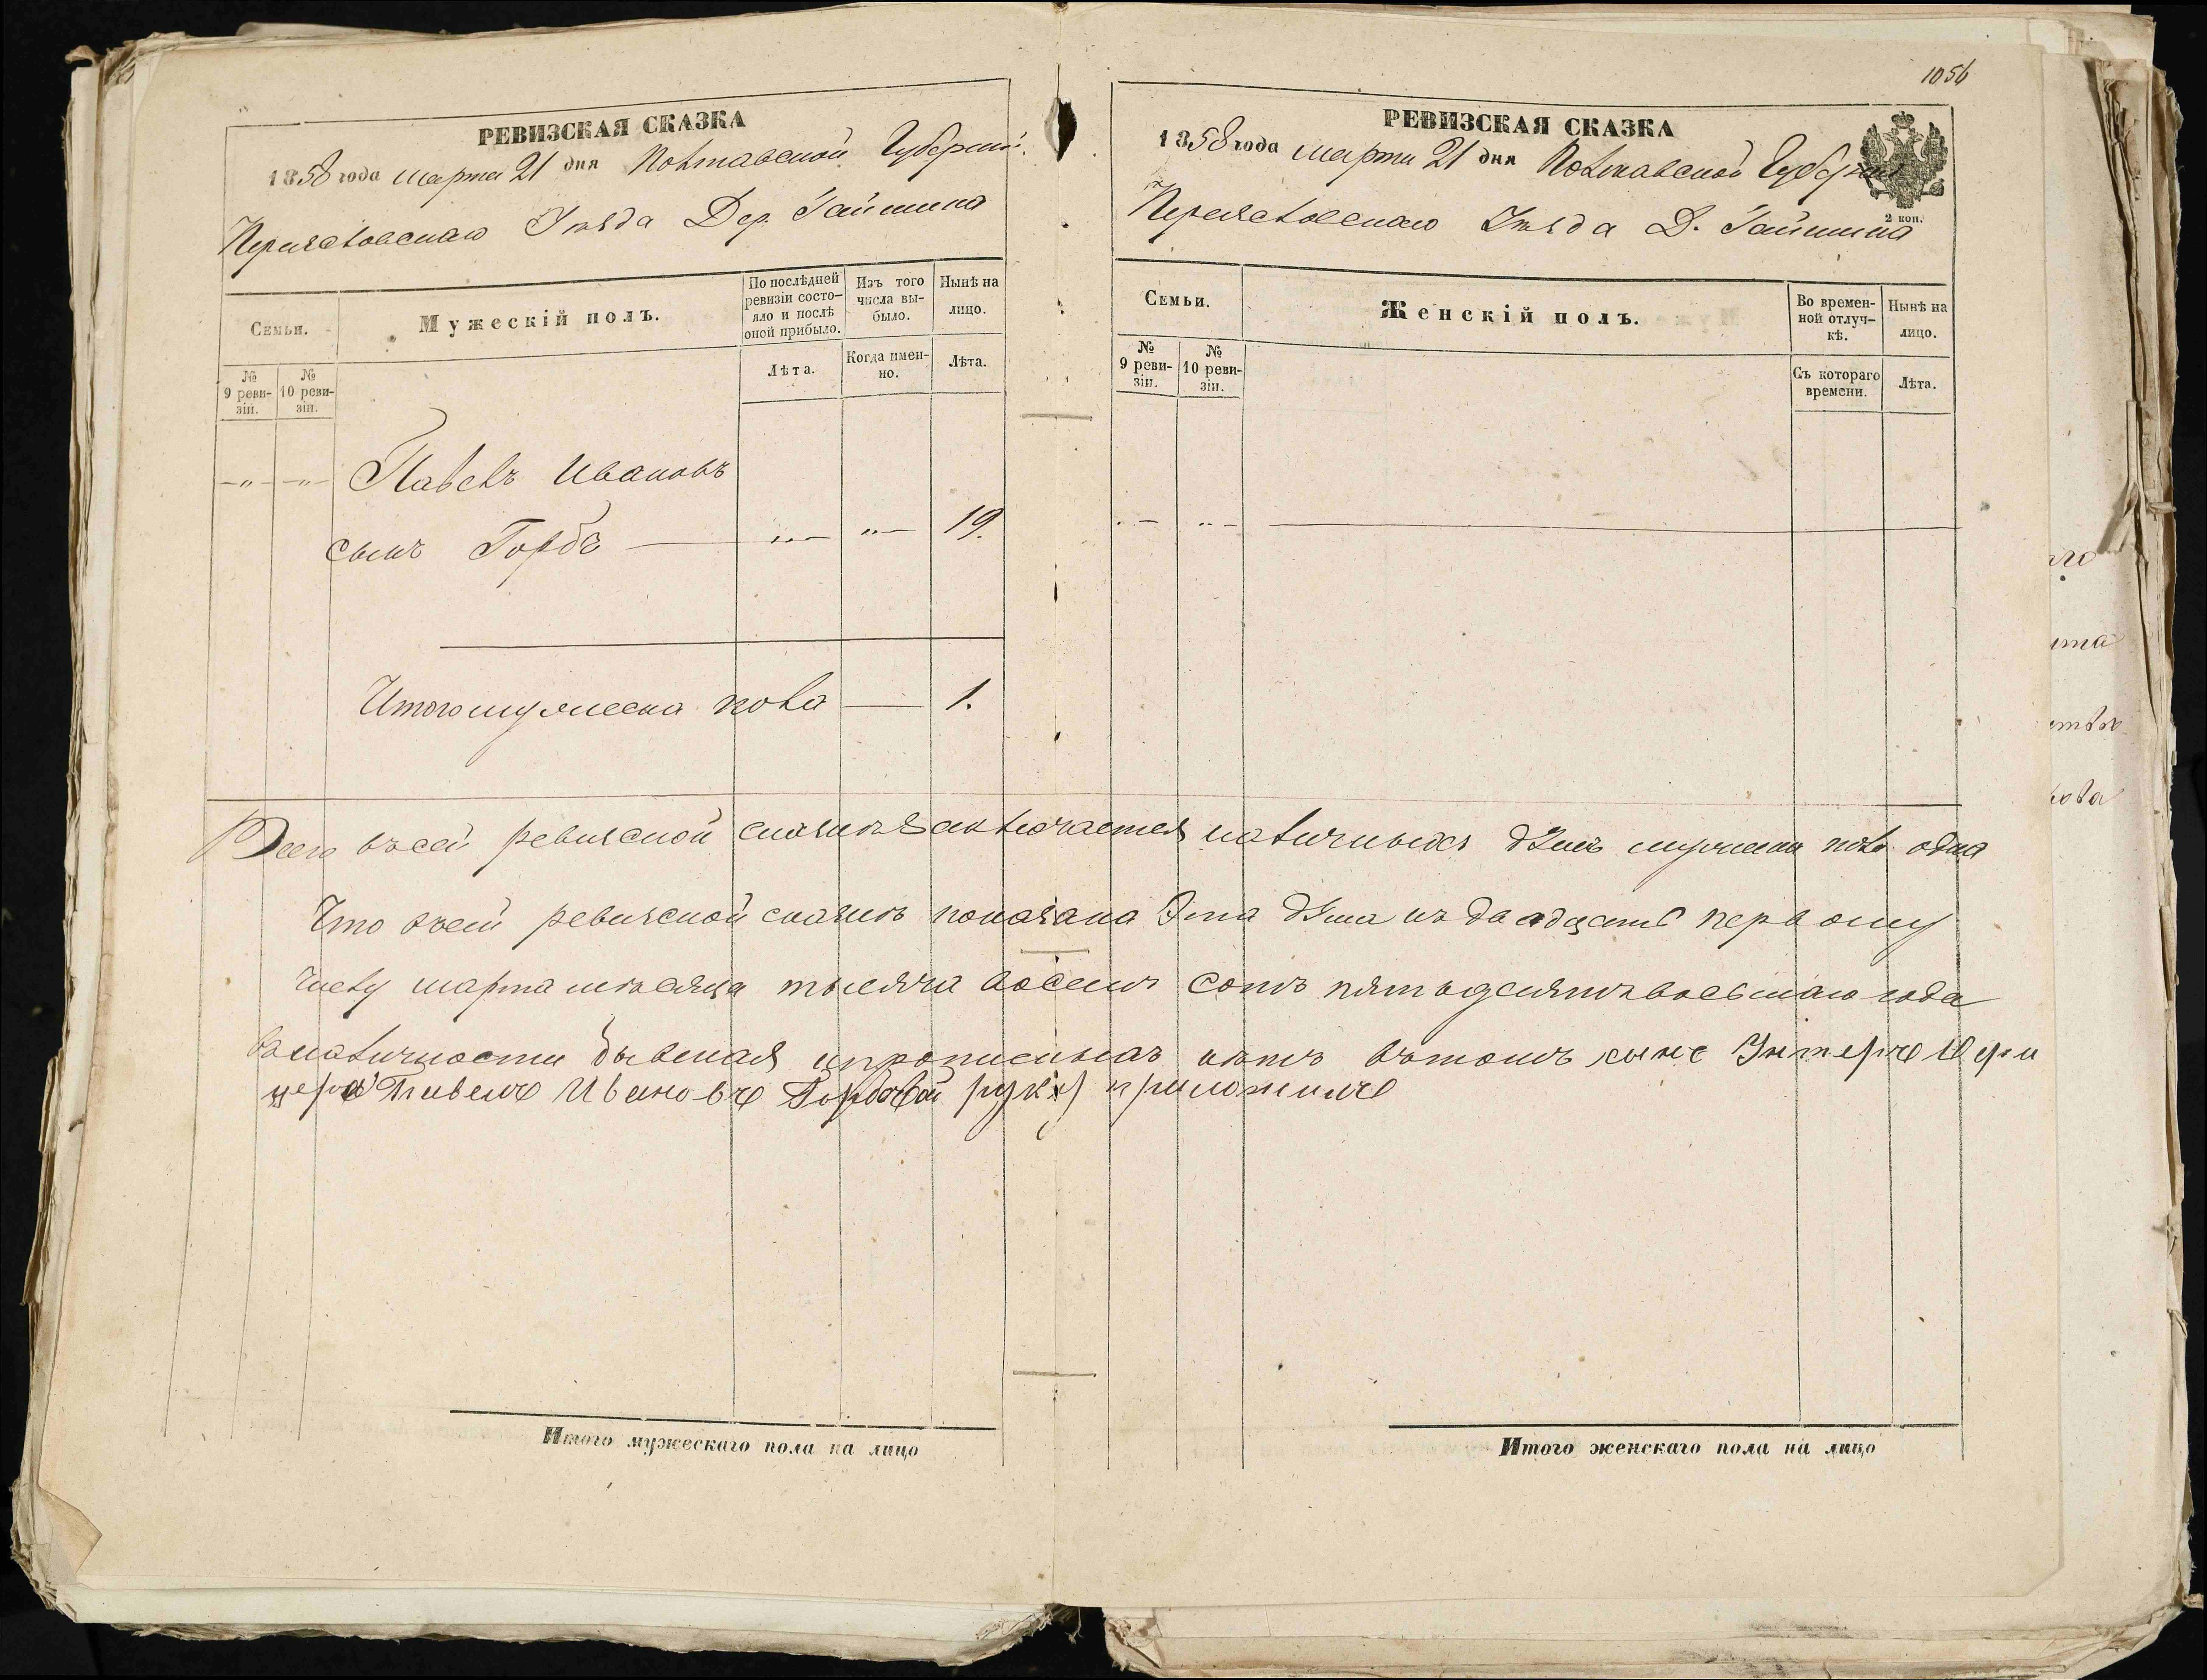 1056
РЕВИЗСКАЯ СКАЗКА
1858 года марта 21 дня Полтавской Губернии
Переяславскаго Уѣзда Дер. Гайшина
Семьи.
Мужескій полъ.
По послѣдней ревизіи состояло и послѣ оной прибыло.
Изъ того числа выбыло.
Нынѣ на лицо.
№ 9 ревизіи.
№ 10 ревизіи.
Лѣта.
Когда именно.
Лѣта.
—„— —„— Павелъ Ивановъ
сынъ Горбъ — „— „— 19.
Итого мужеска пола — 1.
РЕВИЗСКАЯ СКАЗКА
1858 года марта 21 дня Полтавской Губернии
2 коп.
Переяславскаго Уѣзда Д. Гайшина
Семьи.
Женскій полъ.
Во временной отлучкѣ.
Нынѣ на лицо.
№ 9 ревизіи.
№ 10 ревизіи.
Съ котораго времени.
Лѣта.
Всего въ сей ревизской сказкѣ заключается наличныхъ душъ мужеска пола одна
Что в сей ревизской сказкѣ показана Эта душа къ двадцать первому
числу марта мѣсяца тысяча восемь сотъ пятьдесятъ восьмаго года
в наличности бывшая и прописныхъ нѣтъ въ томъ сынъ Унтеръ Офи
цера Павелъ Ивановъ Горбъ руку приложилъ
Итого мужескаго пола на лицо
Итого женскаго пола на лицо